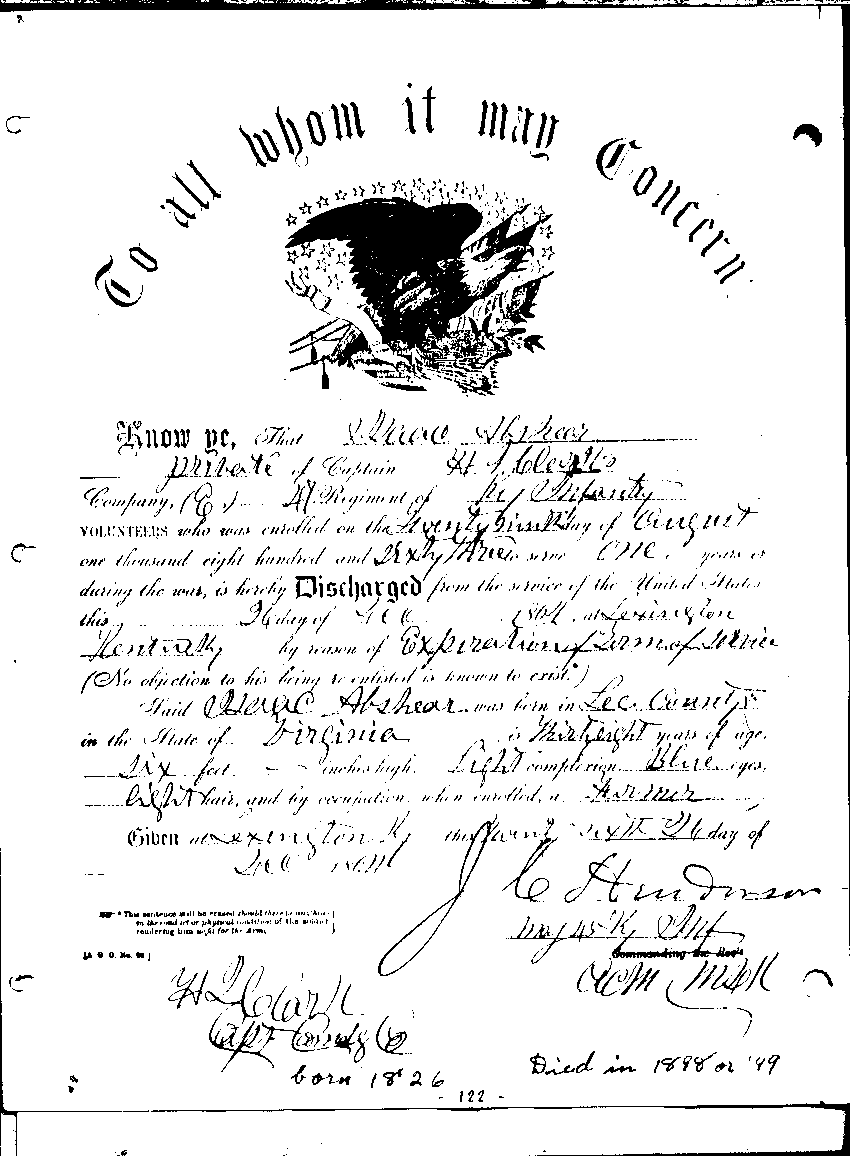 To all whom it may Concern
Know ye, That Isaac Abshear
private of Captain H. S.
Company, (E.) Regiment of Ky Infantry
VOLUNTEERS who was enrolled on the day of August
one thousand eight hundred and Sixty three to serve one years or
during the war, is hereby Discharged from the service of the United States
this 26 day of Dec 1864 at Lexington
Kentucky by reason of Expiration of Term of Service
(No objection to his being re-enlisted is known to exist.*)
Said Isaac Abshear was born in Lee County
in the State of Virginia is thirty eight years of age,
Six feet - - inches high, Light complexion, Blue eyes,
light hair, and by occupation, when enrolled, a Farmer
Given at Lexington Ky this twenty sixth 26 day of
Dec 1864
J C Henderson
Maj 45 Ky Inf
* This sentence will be erased should there be anything
in the conduct or physical condition of the soldier
rendering him unfit for the Army.
Commanding the Reg't
[A. G. O. No. 99]
ACM
Capt Comdg Co
born 1826
Died in 1898 or '99
- 122 -